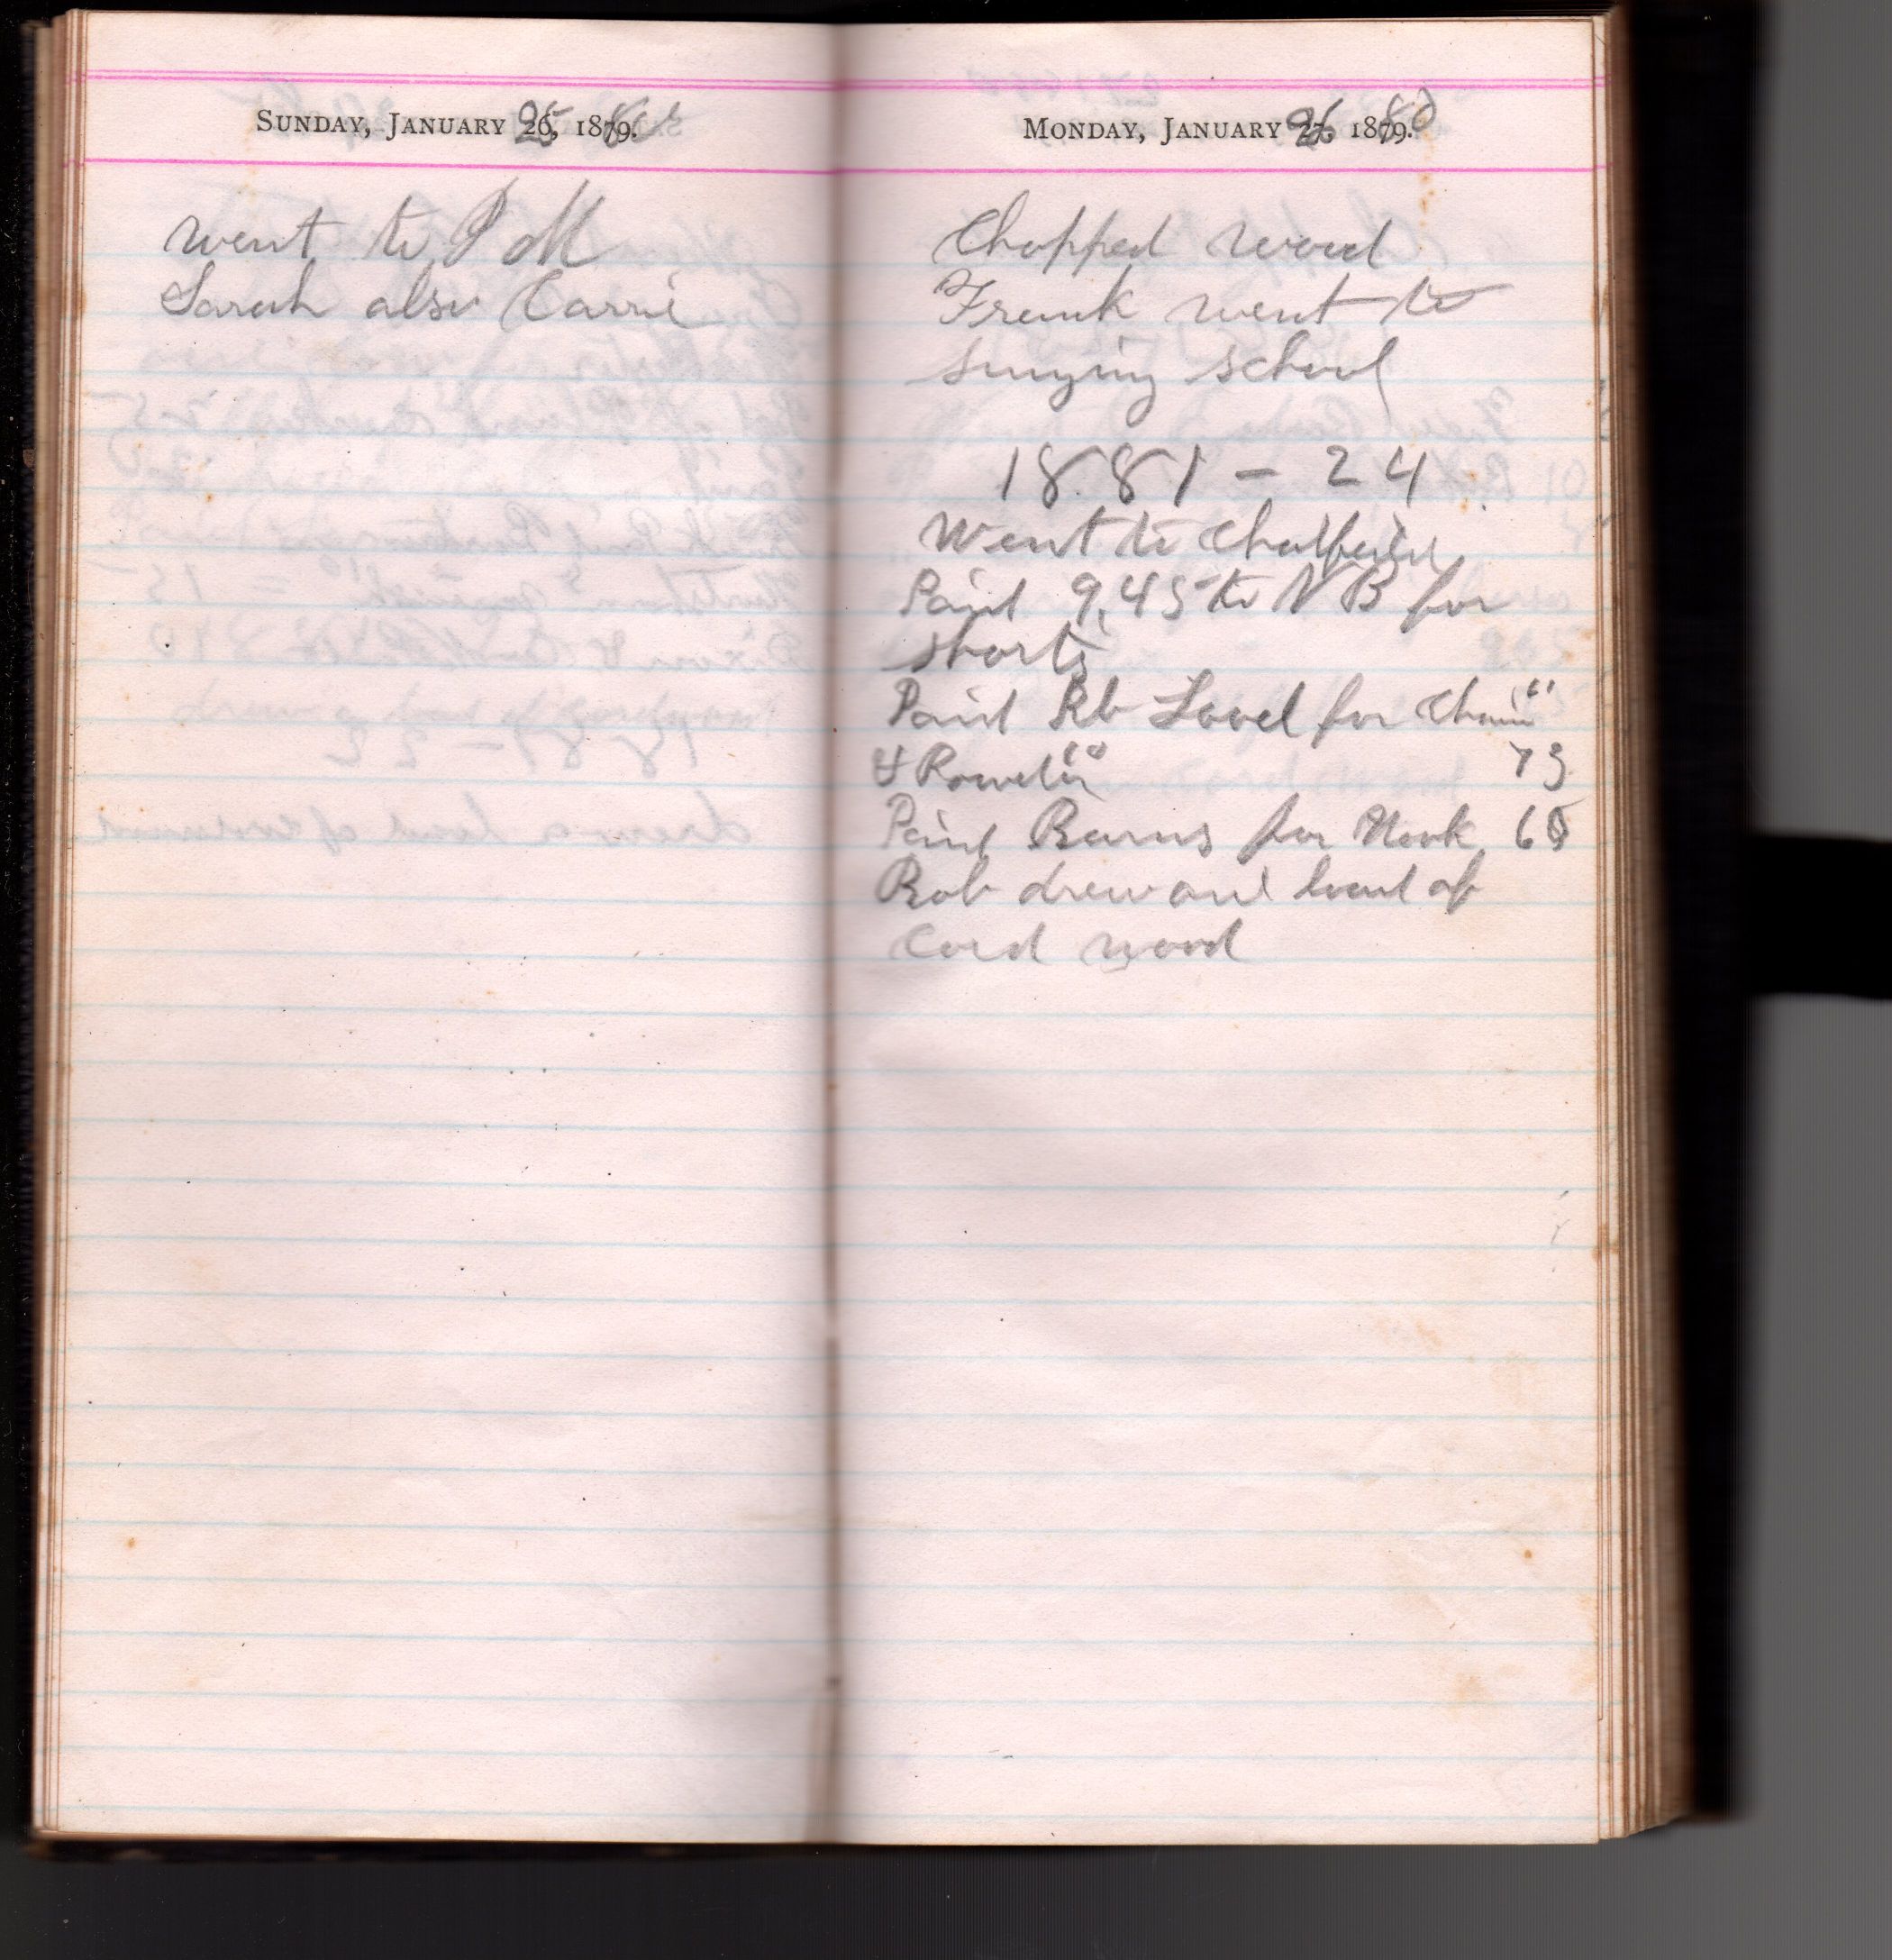 SUNDAY, JANUARY 25, 1880.
went to P M
Sarah also Carrie
MONDAY, JANUARY 26 1880
Chopped wood
Frank went to
singing school
1881 - 24
Went to Chatfield
Paid 9,45 to N B for
shorts
Paid Rb Lovel for Chain "
& 73
Paid Barns for Hook 60
Rob drew one load of
Cord wood